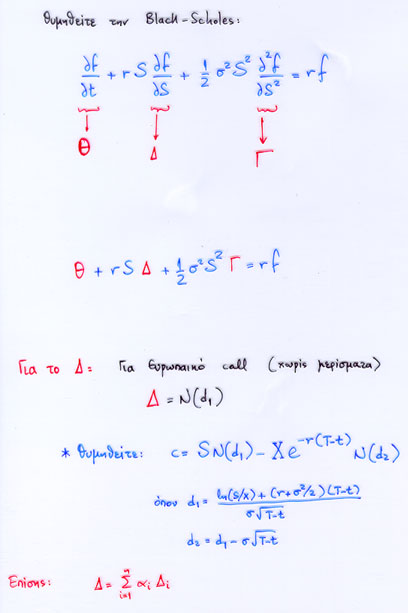 Θυμηθείτε την Black-Scholes:
∂f/∂t + r S ∂f/∂S + 1/2 σ² S² ∂²f/∂S² = rf
Θ Δ Γ
Θ + r S Δ + 1/2 σ² S² Γ = rf
Για το Δ: Για Ευρωπαικό call (χωρίς μερίσματα)
Δ = N(d₁)
* Θυμηθείτε: c = S N(d₁) - X e^{-r(T-t)} N(d₂)
όπου d₁ = (ln(S/X) + (r + σ²/2)(T-t)) / (σ√(T-t))
d₂ = d₁ - σ√(T-t)
Επίσης: Δ = Σ_{i=1}^{n} αᵢ Δᵢ